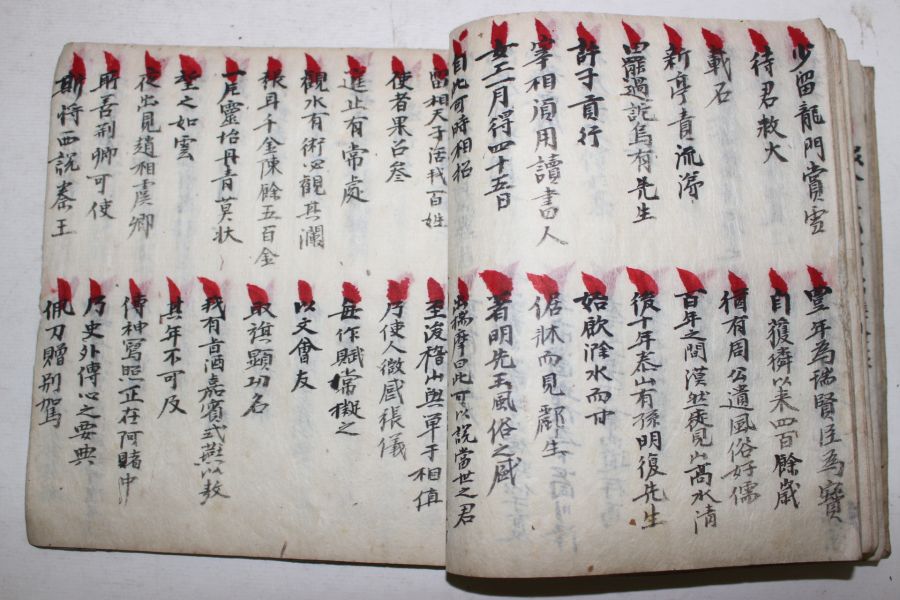 少留龍門賞雪
待君救火
載石
新亭責流涕
罷過詑烏有先生
許子貢行
宰相須用讀書人
女工一月得四十五日
自此可時相招
豊年為瑞賢臣為寶
自獲獜以来四百餘歲
猶有周公遺風俗好儒
百年之間漠然徒見山高水清
後十年泰山有孫明復先生
始飲滁水而甘
倨牀而見酈生
著明先王風俗之盛
出揣摩曰此可以說當世之君
留相天子活我百姓
使者果召參
進止有常處
觀水有術必觀其瀾
張耳千金陳餘五百金
一片靈坮丹青莫狀
望之如雲
夜出見趙相虞卿
所善荆卿可使
斯將西說秦王
至浚稽山與單于相值
乃使人微感張儀
每作賦常擬之
以文會友
取旗顯功名
我有旨酒嘉賓式燕以敖
其年不可及
傳神寫照正在阿賭中
乃史外傳心之要典
佩刀贈別駕